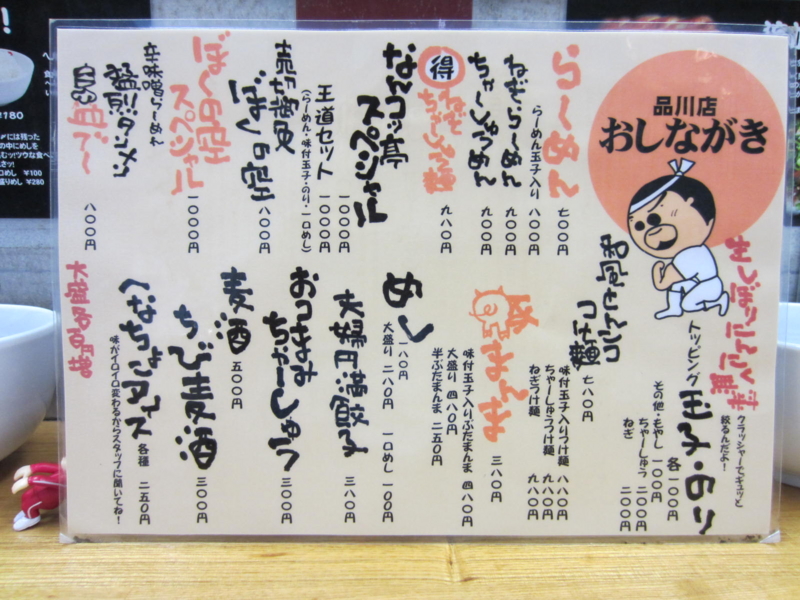 品川店
おしながき
らーめん 七〇〇円
らーめん玉子入り 八〇〇円
ねぎ・らーめん 九〇〇円
ちゃーしゅうめん 九〇〇円
得
ねぎ
ちゃーしゅう麺 九八〇円
なんつッ亭
スペシャル 一〇〇〇円
王道セット 一〇〇〇円
(らーめん・味付玉子・のり・一口めし)
ぼくの空 八〇〇円
ぼくの空
スペシャル 一〇〇〇円
辛味噌らーめん
猛烈!タンメン
八〇〇円
生しぼりにんにく
無料
クラッシャーでギュッと
絞るんだよ!
トッピング
玉子・のり 各一〇〇円
その他・もやし 一〇〇円
ちゃーしゅう 二〇〇円
ねぎ 二〇〇円
つけ麺 七八〇円
味付玉子入りつけ麺 八八〇円
ちゃーしゅうつけ麺 九八〇円
ねぎつけ麺 九八〇円
豚まんま 三八〇円
味付玉子入りぶたまんま 四八〇円
大盛り 四八〇円
半ぶたまんま 二五〇円
めし 一八〇円
大盛り 二八〇円 一口めし 一〇〇円
夫婦円満餃子 三八〇円
おつまみ
ちゃーしゅう 三〇〇円
麦酒 五〇〇円
ちび麦酒 三〇〇円
へなちょこアイス 各種 二五〇円
味がイロイロ変わるからスタッフに聞いてね!
大盛各百円増
¥100
¥280